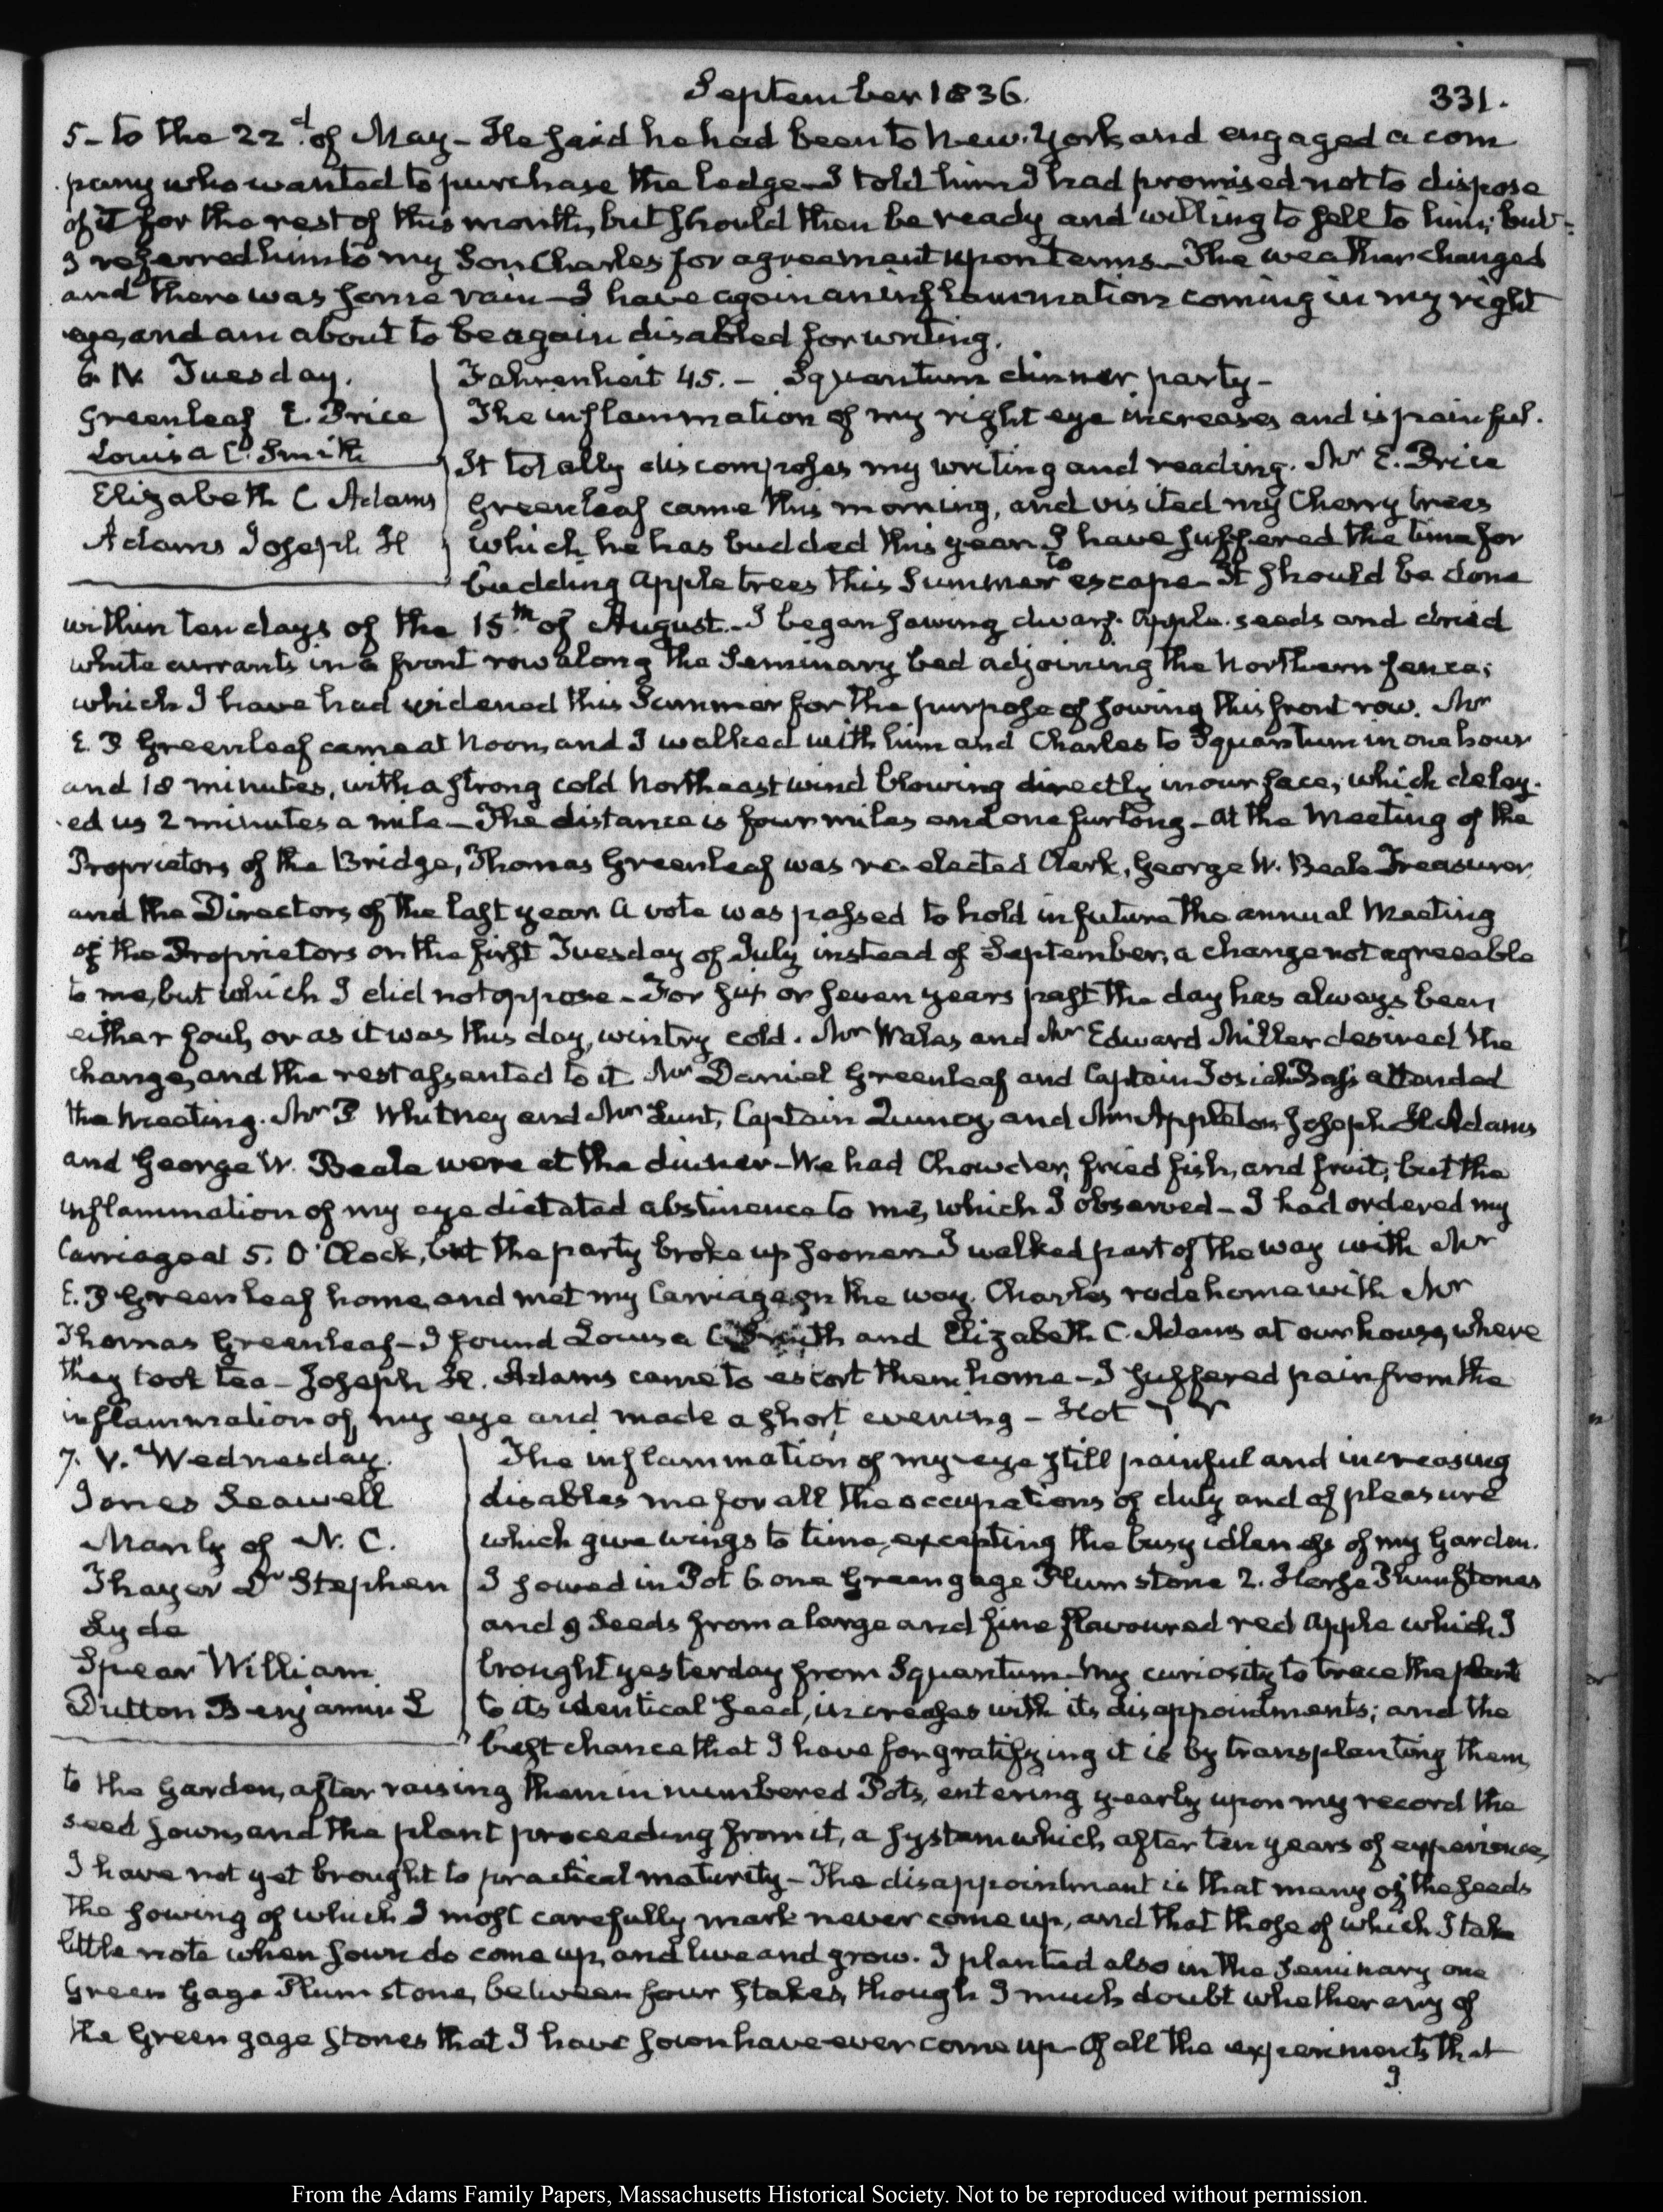 September 1836.
331.
5- to the 22d. of May- He said he had been to New-York and engaged a com
pany who wanted to purchase the ledge- I told him I had promised not to dispose
of it for the rest of this month, but should then be ready and willing to sell to him; but
I referred him to my Son Charles for agreement upon terms- The weather changed
and there was some rain- I have again an inflammation coming in my right
eye, and am about to be again disabled for writing.
6. IV. Tuesday.
Greenleaf E. Price
Louisa C. Smith
Elizabeth C Adams
Adams Joseph H
Fahrenheit 45.- Squantum dinner party-
The inflammation of my right eye increases and is painful.
It totally discomposes my writing and reading. Mr E. Price
Greenleaf came this morning, and visited my Cherry trees
which he has budded this year. I have suffered the time for
budding Apple trees this Summer to escape- It should be done
within ten days of the 15th. of August.- I began sowing dwarf. Apple. seeds and dried
white currants in a front row along the Seminary bed adjoining the Northern fence;
which I have had widened this Summer for the purpose of sowing this front row. Mr
E. P Greenleaf came at Noon, and I walked with him and Charles to Squantum in one hour
and 18 minutes, with a strong cold Northeast wind blowing directly in our face, which delay-
ed us 2 minutes a mile- The distance is four miles and one furlong- At the Meeting of the
Proprietors of the Bridge, Thomas Greenleaf was re-elected Clerk, George W. Beale Treasurer
and the Directors of the last year. A vote was passed to hold in future the annual Meeting
of the Proprietors on the first Tuesday of July instead of September, a change not agreeable
to me, but which I did not oppose- For six or seven years past the day has always been
either foul, or as it was this day, wintry cold. Mr Wales and Mr Edward Miller desired the
change, and the rest assented to it. Mr Daniel Greenleaf and Captain Josiah Bass attended
the Meeting. Mr P Whitney and Mr Lunt, Captain Quincy, and Mr Appleton Joseph H Adams
and George W. Beale were at the dinner- We had Chowder, fried fish, and fruit; but the
inflammation of my eye dictated abstinence to me, which I observed- I had ordered my
Carriage at 5. O'Clock, but the party broke up sooner. I walked part of the way with Mr
E. P Greenleaf home, and met my Carriage on the way. Charles rode home with Mr
Thomas Greenleaf- I found Louisa C. Smith and Elizabeth C. Adams at our house, where
they took tea- Joseph H. Adams came to escort them home- I suffered pain from the
inflammation of my eye and made a short evening- Hot
7. V. Wednesday.
Jones Seawell
Manly of N. C.
Thayer Dr Stephen
Lyde
Spear William
Dutton Benjamin L
The inflammation of my eye still painful and increasing
disables me for all the occupations of duty and of pleasure
which give wings to time, excepting the busy idleness of my Garden.
I sowed in Pot 6 one Greengage Plum stone 2. Horse Plum stones
and 9 Seeds from a large and fine flavoured red Apple which I
brought yesterday from Squantum- My curiosity to trace the plant
to its identical seed, increases with its disappointments; and the
best chance that I have for gratifying it is by transplanting them,
to the Garden, after raising them in numbered Pots, entering yearly upon my record the
seed sown, and the plant proceeding from it, a system which after ten years of experience,
I have not yet brought to practical maturity- The disappointment is that many of the seeds
the sowing of which I most carefully mark never come up, and that those of which I take
little note when sown do come up, and live and grow. I planted also in the Seminary one
Green Gage Plum stone, between four stakes, though I much doubt whether any of
the Green gage stones that I have sown have ever come up- Of all the experiments that
I
From the Adams Family Papers, Massachusetts Historical Society. Not to be reproduced without permission.